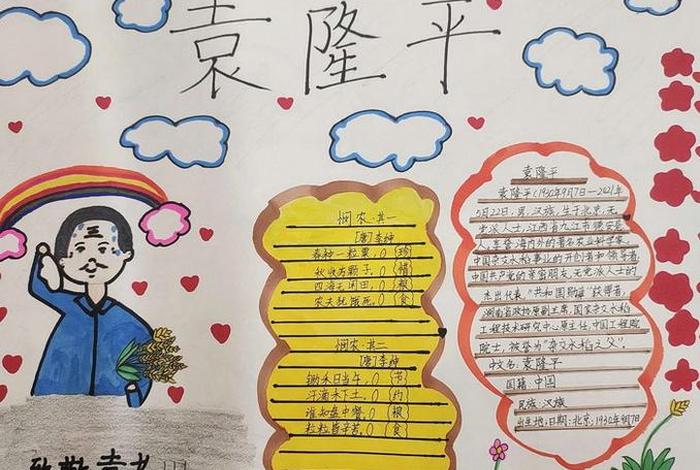 袁隆平
悯农·其一
[唐]李绅
春种一粒粟,0(珍)
秋收万颗子,(惜)
四海无闲田,0(粮)
农夫犹饿死。0(食)
悯农·其二
[唐]李绅
锄禾日当午,0(节)
汗滴禾下土。(约)
谁知盘中餐,0(粮)
粒粒皆辛苦。0(食)
袁隆平
袁隆平(1930年9月7日—2021年
5月22日,男,汉族,生于北京,无
党派人士,江西省九江市德安县
人,享誉海内外的著名农业科学家,
中国杂交水稻事业的开创者和领导者,
中国共产党的亲密朋友,无党派人士的
杰出代表,"共和国勋章"获得者,
湖南省政协原副主席,国家杂交水稻
工程技术研究中心原主任,中国工程院
院士,被誉为"杂交水稻之父"。
中文名:袁隆平
国籍:中国
民族:汉族
出生地:日期:北京,1930年9月7日
致敬袁老